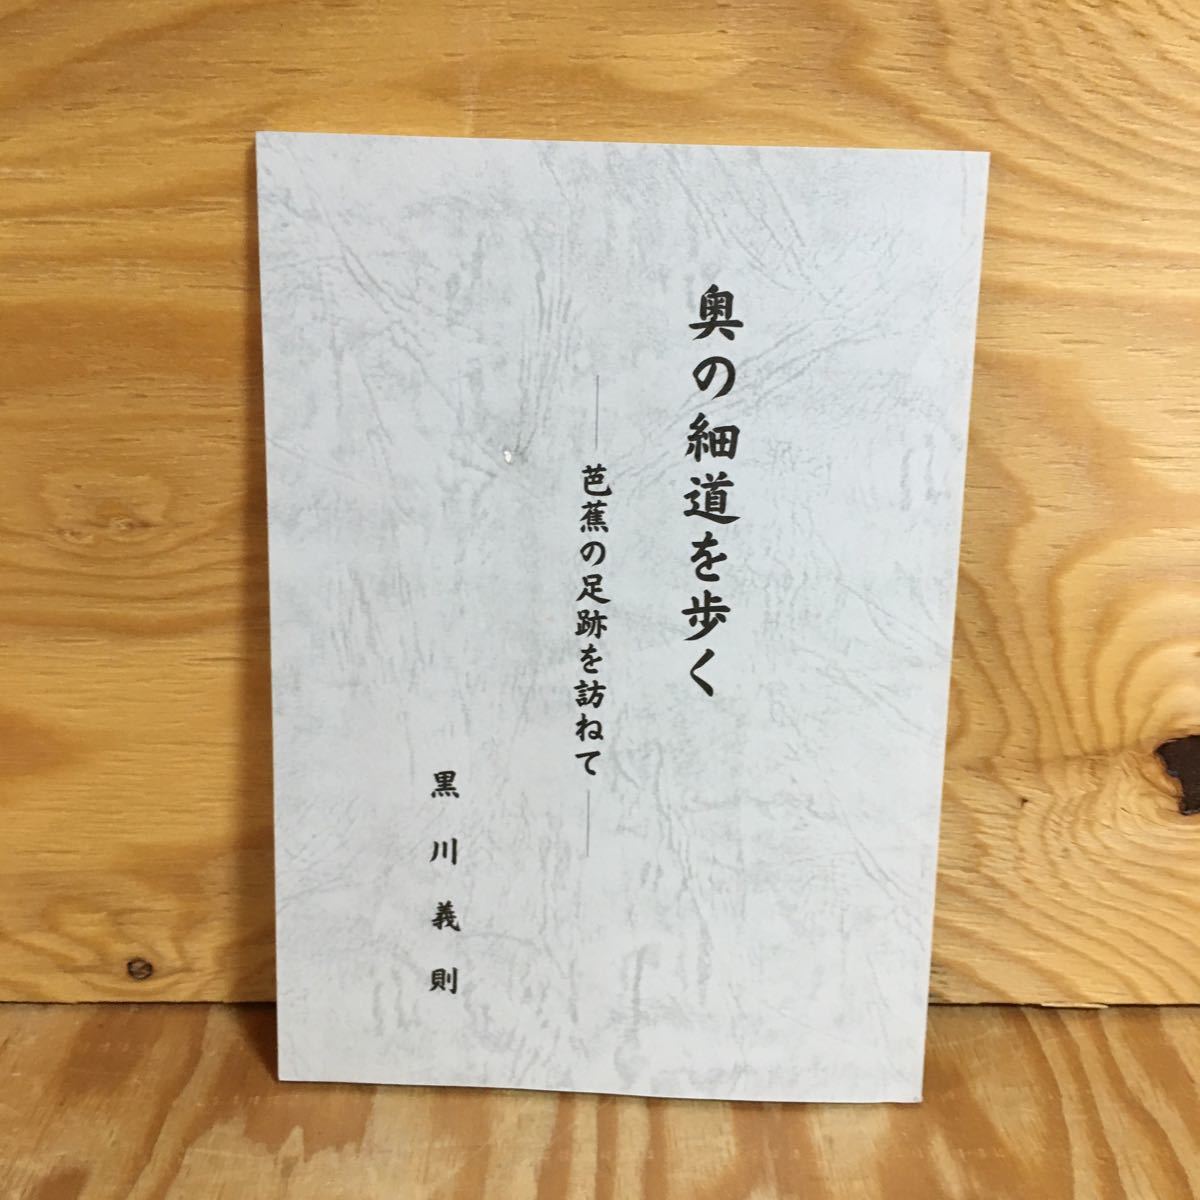 奥の細道を歩く
――芭蕉の足跡を訪ねて――
黒川義則